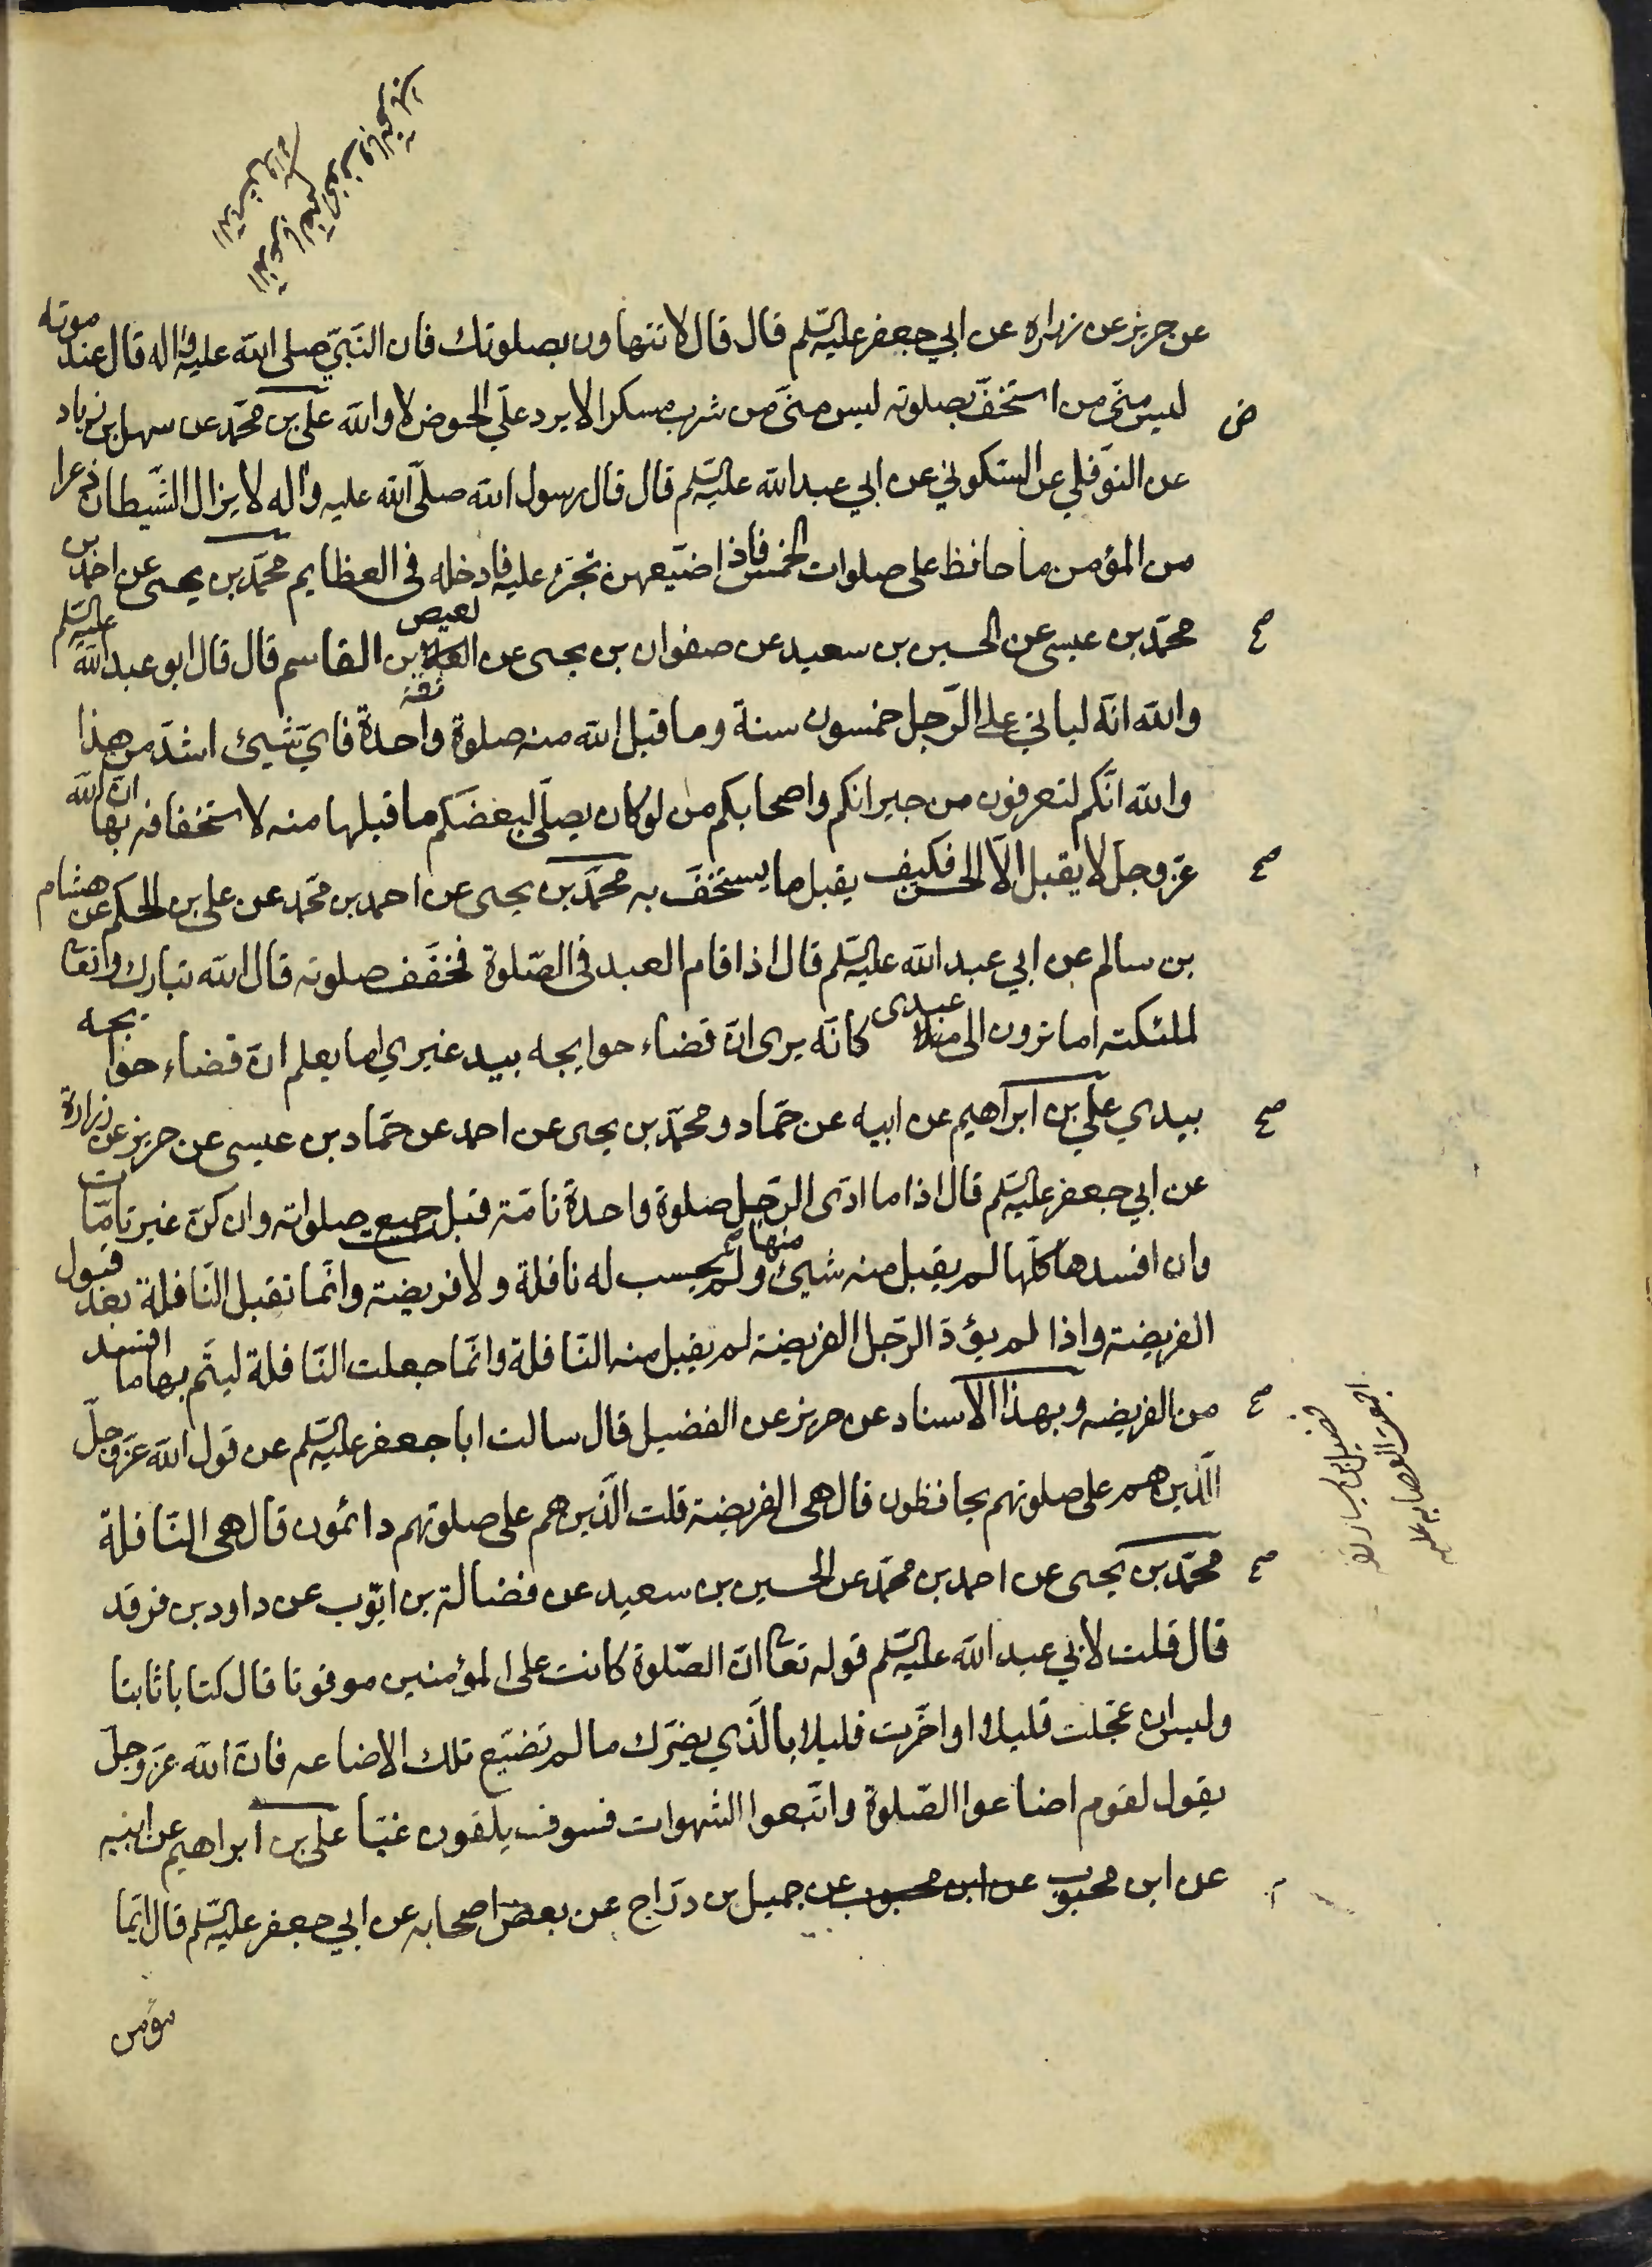 عن حريز عن زراره عن ابي جعفر عليه السلم قال قال لا تتهاون بصلوتك فان النبيّ صلى الله عليه واله قال عند موته
ليس منّى من استخفّ بصلوته ليس منّى من شرب مسكرا لا يرد علّي الحوض لا والله علّي بن محمّد عن سهل بن زياد
ض
عن النوفلي عن السّكوني عن ابي عبد الله عليه السلم قال قال رسول الله صلّى الله عليه واله لا يزال الشّيطان ذعرا
من المؤمن ما حافظ على صلوات الخمس فاذا ضيّعهن تجرّء عليه فادخله فى العظايم محمّد بن يحيى عن احمد بن
محمّد بن عيسى عن الحسين بن سعيد عن صفوان بن يحيى عن العيص بن القاسم قال قال ابو عبد الله عليه السلم
صح
ثقة
والله انّه لياتي على الرّجل خمسون سنة وما قبل الله منه صلوة واحدة فايّ شيئ اشدّ من هذا
والله انّكم لتعرفون من جيرانكم واصحابكم من لو كان يصلّى لبعضكم ما قبلها منه لاستخفافه بها انّ الله
عزّ وجلّ لا يقبل الّا الحسن فكيف يقبل ما يستخفّ به محمّد بن يحيى عن احمد بن محمّد عن على بن الحكم عن هشام
صح
بن سالم عن ابي عبد الله عليه السلم قال اذا قام العبد فى الصّلوة فخفّف صلوته قال الله تبارك وتعا
لملئكته اما ترون الى عبدى كانّه يرى انّ قضاء حوايجه بيد غيري اما يعلم انّ قضاء حوايجه
بيدي علي بن ابراهيم عن ابيه عن حمّاد ومحمّد بن يحيى عن احمد عن حمّاد بن عيسى عن حريز عن زرارة
صح
عن ابي جعفر عليه السلم قال اذا ما ادّى الرّجل صلوة واحدة تامّة قبل جميع صلواته وان كنّ غير تامّات
وان افسدها كلّها لم يقبل منه شيئ منها ولم يحسب له نافلة ولا فريضة وانّما تقبل النّافلة بعد قبول
الفريضة واذا لم يؤدّ الرّجل الفريضة لم يقبل منه النّافلة وانّما جعلت النّافلة ليتّم بها ما افسد
من الفريضه وبهذا الاسناد عن حريز عن الفضيل قال سالت ابا جعفر عليه السلم عن قول الله عزّ وجلّ
صح
فضيل بن يسار ثقة
اجمعت العصابه عليه
الّذين هم على صلوتهم يحافظون قال هى الفريضة قلت الّذين هم على صلوتهم دائمون قال هى النّافلة
محمّد بن يحيى عن احمد بن محمّد عن الحسين بن سعيد عن فضالة بن ايّوب عن داود بن فرقد
صح
قال قلت لابي عبد الله عليه السلم قوله تعا انّ الصّلوة كانت على المؤمنين موقوتا قال كتابا ثابتا
وليس ان عجّلت قليلا او اخّرت قليلا بالّذي يضرّك ما لم تضيّع تلك الاضاعه فانّ الله عزّ وجلّ
يقول لقوم اضاعوا الصّلوة واتّبعوا الشهوات فسوف يلقون غيّا على بن ابراهيم عن ابيه
عن ابن محبوب عن ابن محبوب عن جميل بن درّاج عن بعض اصحابه عن ابي جعفر عليه السلم قال ايّما
مؤمن